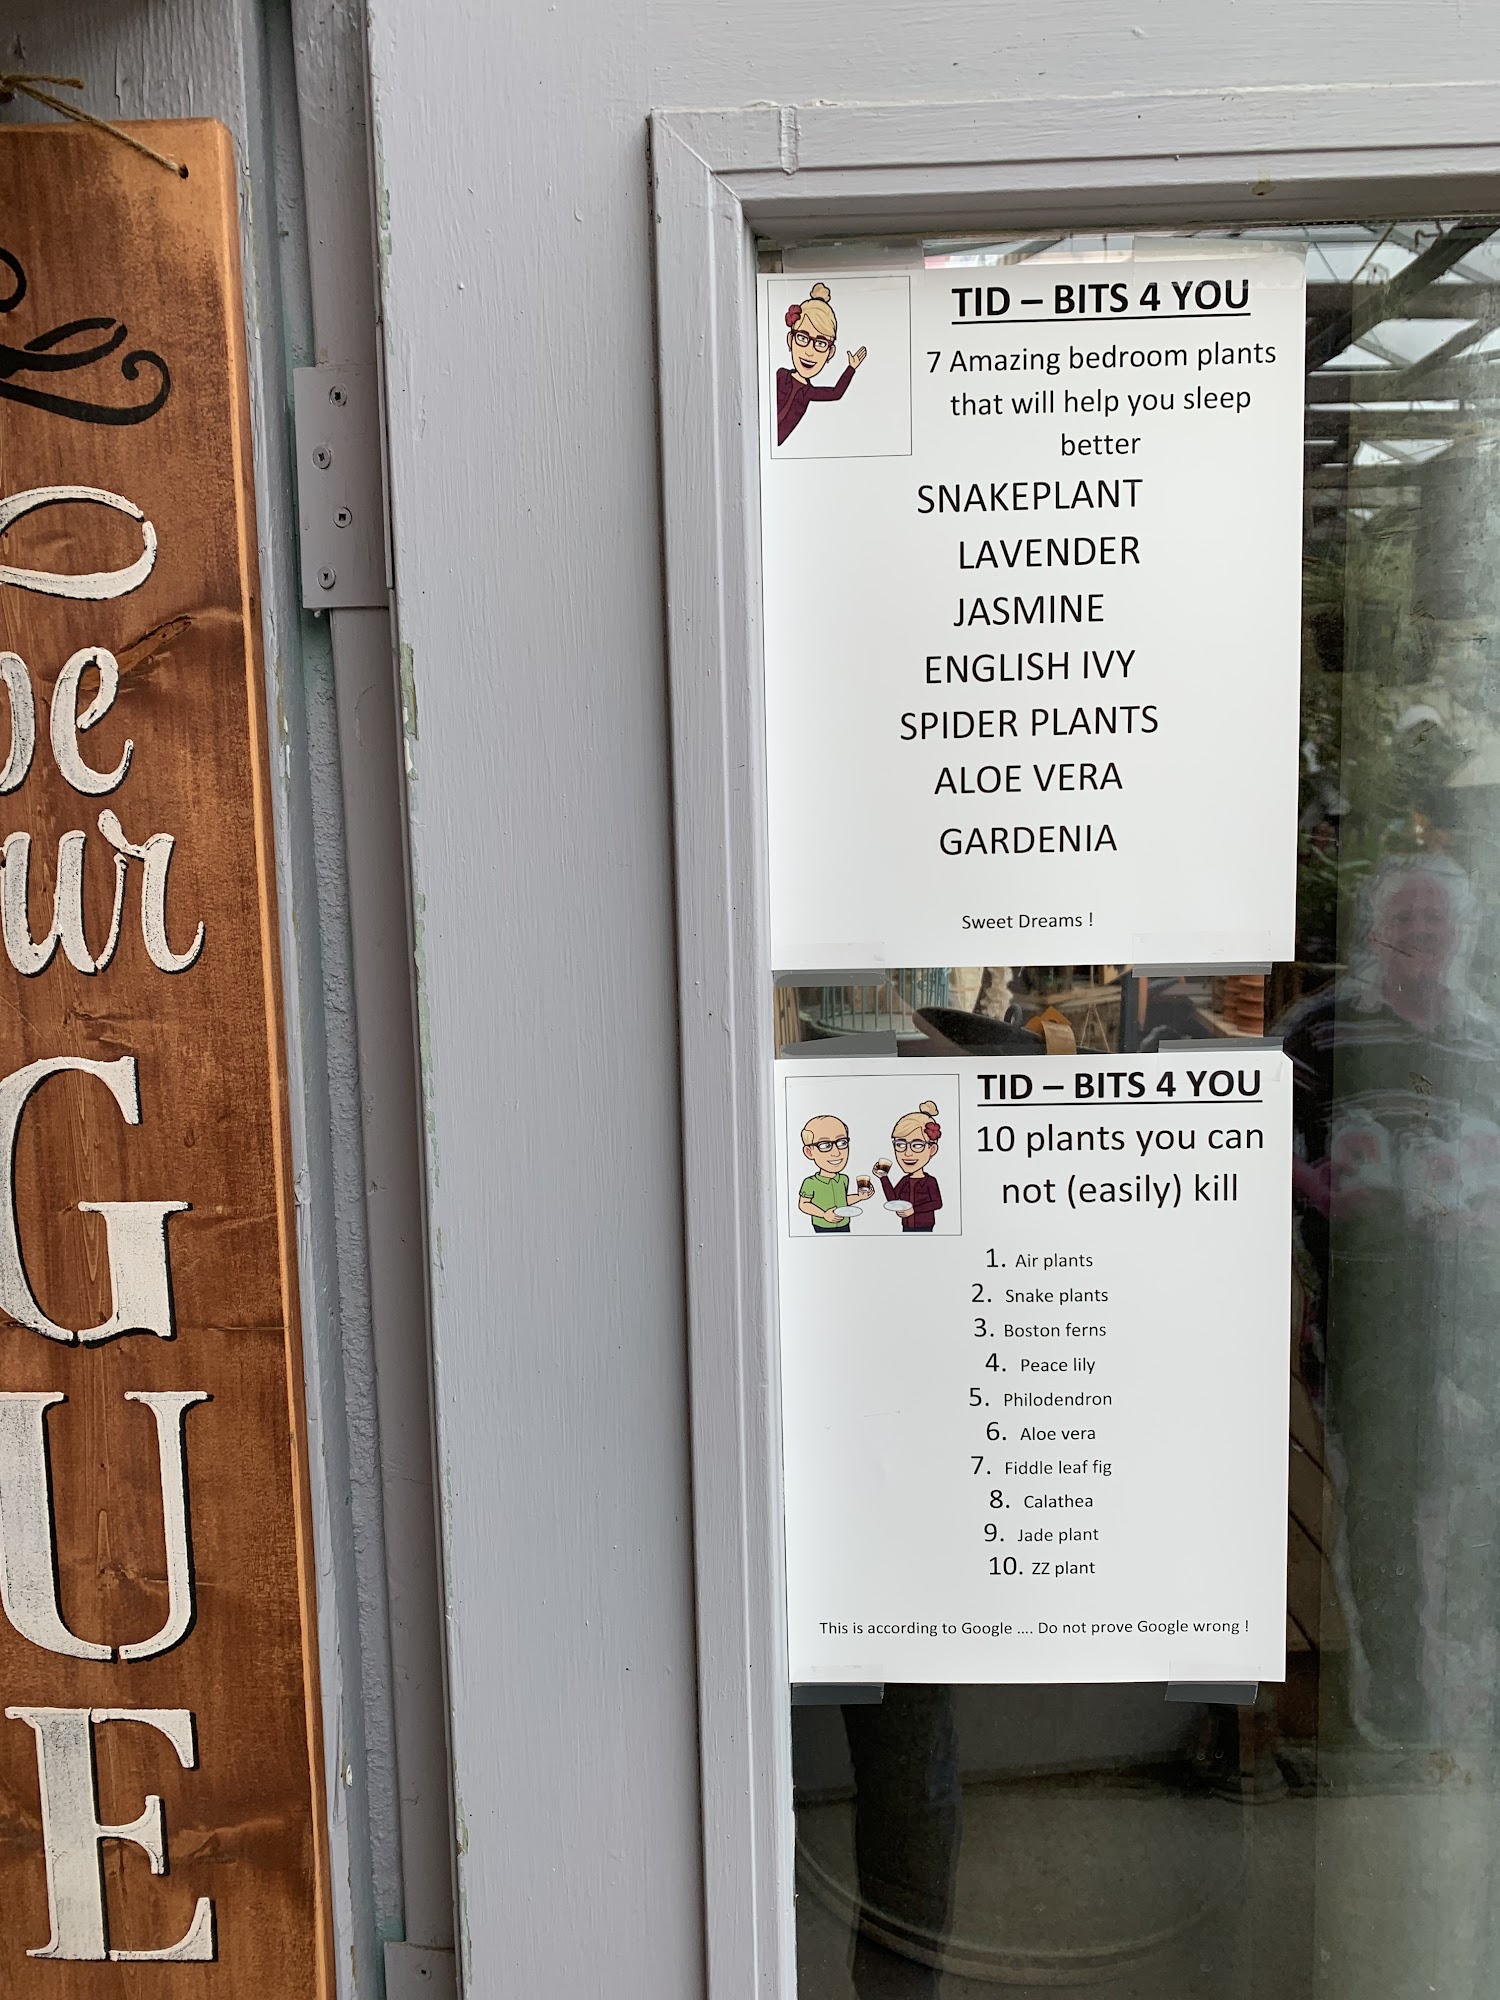 be
G
U
E
TID – BITS 4 YOU
7 Amazing bedroom plants
that will help you sleep
better
SNAKEPLANT
LAVENDER
JASMINE
ENGLISH IVY
SPIDER PLANTS
ALOE VERA
GARDENIA
Sweet Dreams !
TID – BITS 4 YOU
10 plants you can
not (easily) kill
1. Air plants
2. Snake plants
3. Boston ferns
4. Peace lily
5. Philodendron
6. Aloe vera
7. Fiddle leaf fig
8. Calathea
9. Jade plant
10. ZZ plant
This is according to Google .... Do not prove Google wrong !